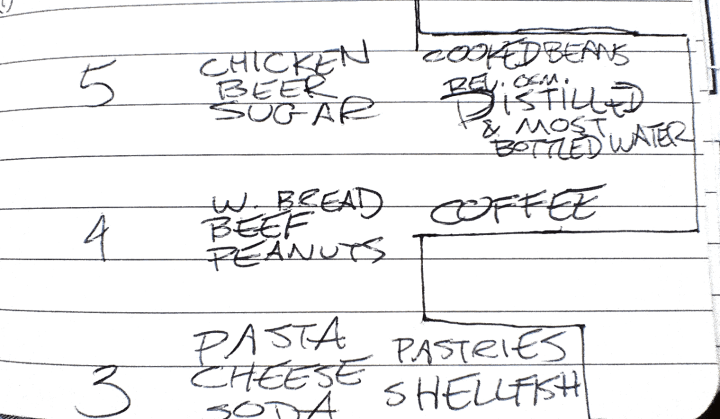 5
CHICKEN
BEER
SUGAR
COOKED BEANS
REV. OSM.
DISTILLED
& MOST
BOTTLED WATER
4
W. BREAD
BEEF
PEANUTS
COFFEE
3
PASTA
CHEESE
SODA
PASTRIES
SHELLFISH